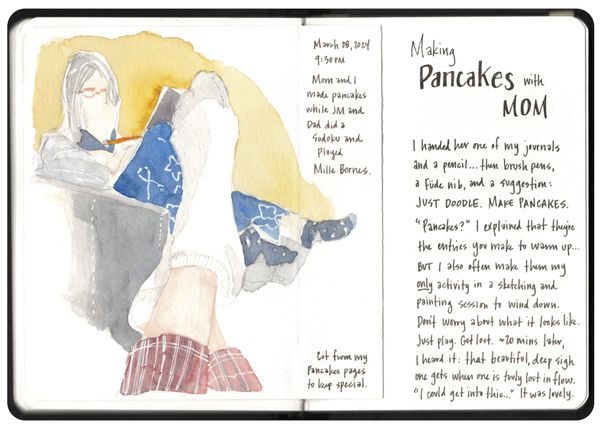 March 08, 2024
9:30 PM
Mom and I
made pancakes
while JM and
Dad did a
Sudoku and
Played
Mille Bornes.
Cut from my
Pancakes pages
to keep special.
Making
Pancakes with
MOM
I handed her one of my journals
and a pencil... then brush pens,
a Füde nib, and a suggestion:
JUST DOODLE. MAKE PANCAKES.
"Pancakes?" I explained that they're
the entries you make to warm up...
BUT I also often make them my
only activity in a sketching and
painting session to wind down.
Don't worry about what it looks like.
Just play. Get lost. ~20 mins later,
I heard it: that beautiful, deep sigh
one gets when one is truly lost in flow.
"I could get into this..." It was lovely.